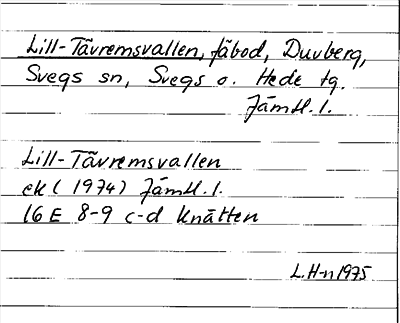 Lill-Tävremsvallen, fäbod, Duvberg,
Svegs sn, Svegs o. Hede tg.
Jämtl. l.
Lill-Tävremsvallen
ek (1974) Jämtl. l.
16 E 8-9 c-d Knätten
L.H-n 1975